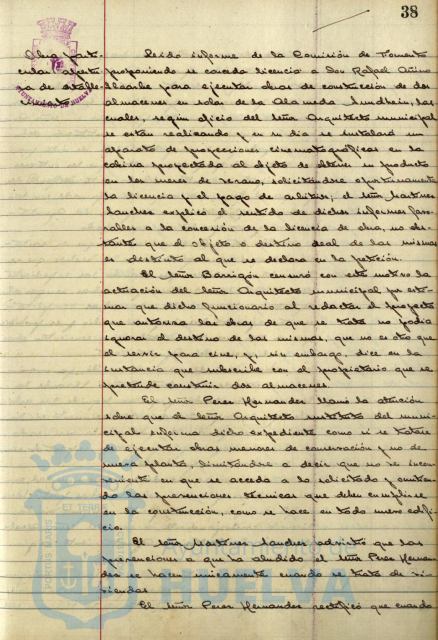 38
Obra par-
cular apertu
ra de estable-
cimiento
AYUNTAMIENTO DE HUELVA
Leído informe de la Comisión de Fomento
proponiendo se conceda licencia a Don Rafael
para ejecutar obras de construcción de dos
almacenes en solar de la Alameda Sundheim, las
cuales, según oficio del Señor Arquitecto municipal
se están realizando y en su día se instalará un
aparato de proyecciones cinematográficas en la
cabina proyectada al objeto de obtener un producto
en los meses de verano, solicitándose oportunamente
la licencia y el pago de arbitrios; el Señor Martinez
Sanchez explicó el sentido de dichos informes favo-
rables a la concesión de la licencia de obra, no obs-
tante que el objeto o destino de las mismas
es distinto al que se declara en la petición.
El Señor Barrigón censuró con este motivo la
actuación del Señor Arquitecto municipal por esti-
mar que dicho funcionario al redactar el proyecto
que autoriza las obras de que se trata no podía
ignorar el destino de las mismas, que no es otro que
el servir para cine, y, sin embargo, dice en la
instancia que suscribe con el propietario que se
pretende construir dos almacenes.
El Señor Perez Hernandez llamó la atención
sobre que el Señor Arquitecto sustituto del muni-
cipal informa dicho expediente como si se tratare
de ejecutar obras menores de conservación y no de
nueva planta, limitándose a decir que no ve incon-
veniente en que se acceda a lo solicitado y omitien-
do las prevenciones técnicas que deben cumplirse
en la construcción, como se hace en todo nuevo edifi-
cio.
El Señor Martinez Sanchez advirtió que las
prevenciones a que ha aludido el Señor Perez Hernan-
dez se hacen unicamente cuando se trata de vi-
viendas.
El Señor Perez Hernandez rectificó que cuando
Ayuntamiento de
HUELVA